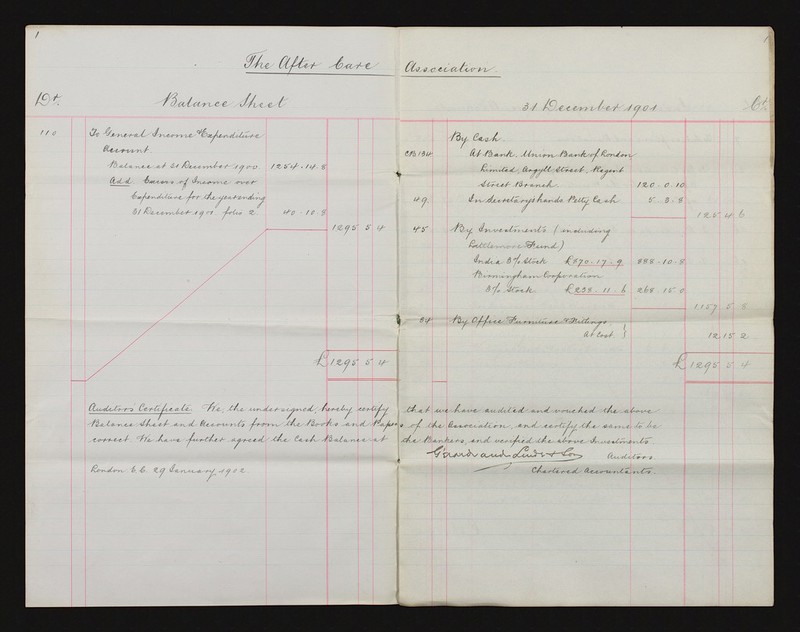 1
1
The After Care Association
Dr. Balance Sheet 31 December 1901 Cr.
110 To General Income & Expenditure
Account.
Balance at 31 December 1900 1254.14.8
Add Excess of Income over
Expenditure for the year ending
31 December 1901 folio 2 40.10.8
1295 5 4
£1295 5 4
By Cash
CB134 At Bank. Union Bank of London
Limited, Argyll Street, Regent
Street Branch 120.0.10
49. In Secretary's hands Petty Cash 5.3.8
125 4 6
45 By Investments (including
Fund)
India 3% Stock £870-17-9 888-10-8
Birmingham Corporation
3% Stock £238.11.6 268.15.0
1157 5 8
34 By Office Furniture & Fittings
At Cost. } 12 15 2
£1295 5 4
Auditors Certificate. We, the undersigned, hereby certify that we have audited and vouched the above
Balance Sheet and Accounts from the Books and Papers of the Association, and certify the same to be
correct. We have further agreed the Cash Balance at the Bankers, and verified the above Investments
& Son Auditors
Chartered Accountants.
London E.C. 29 January 1902